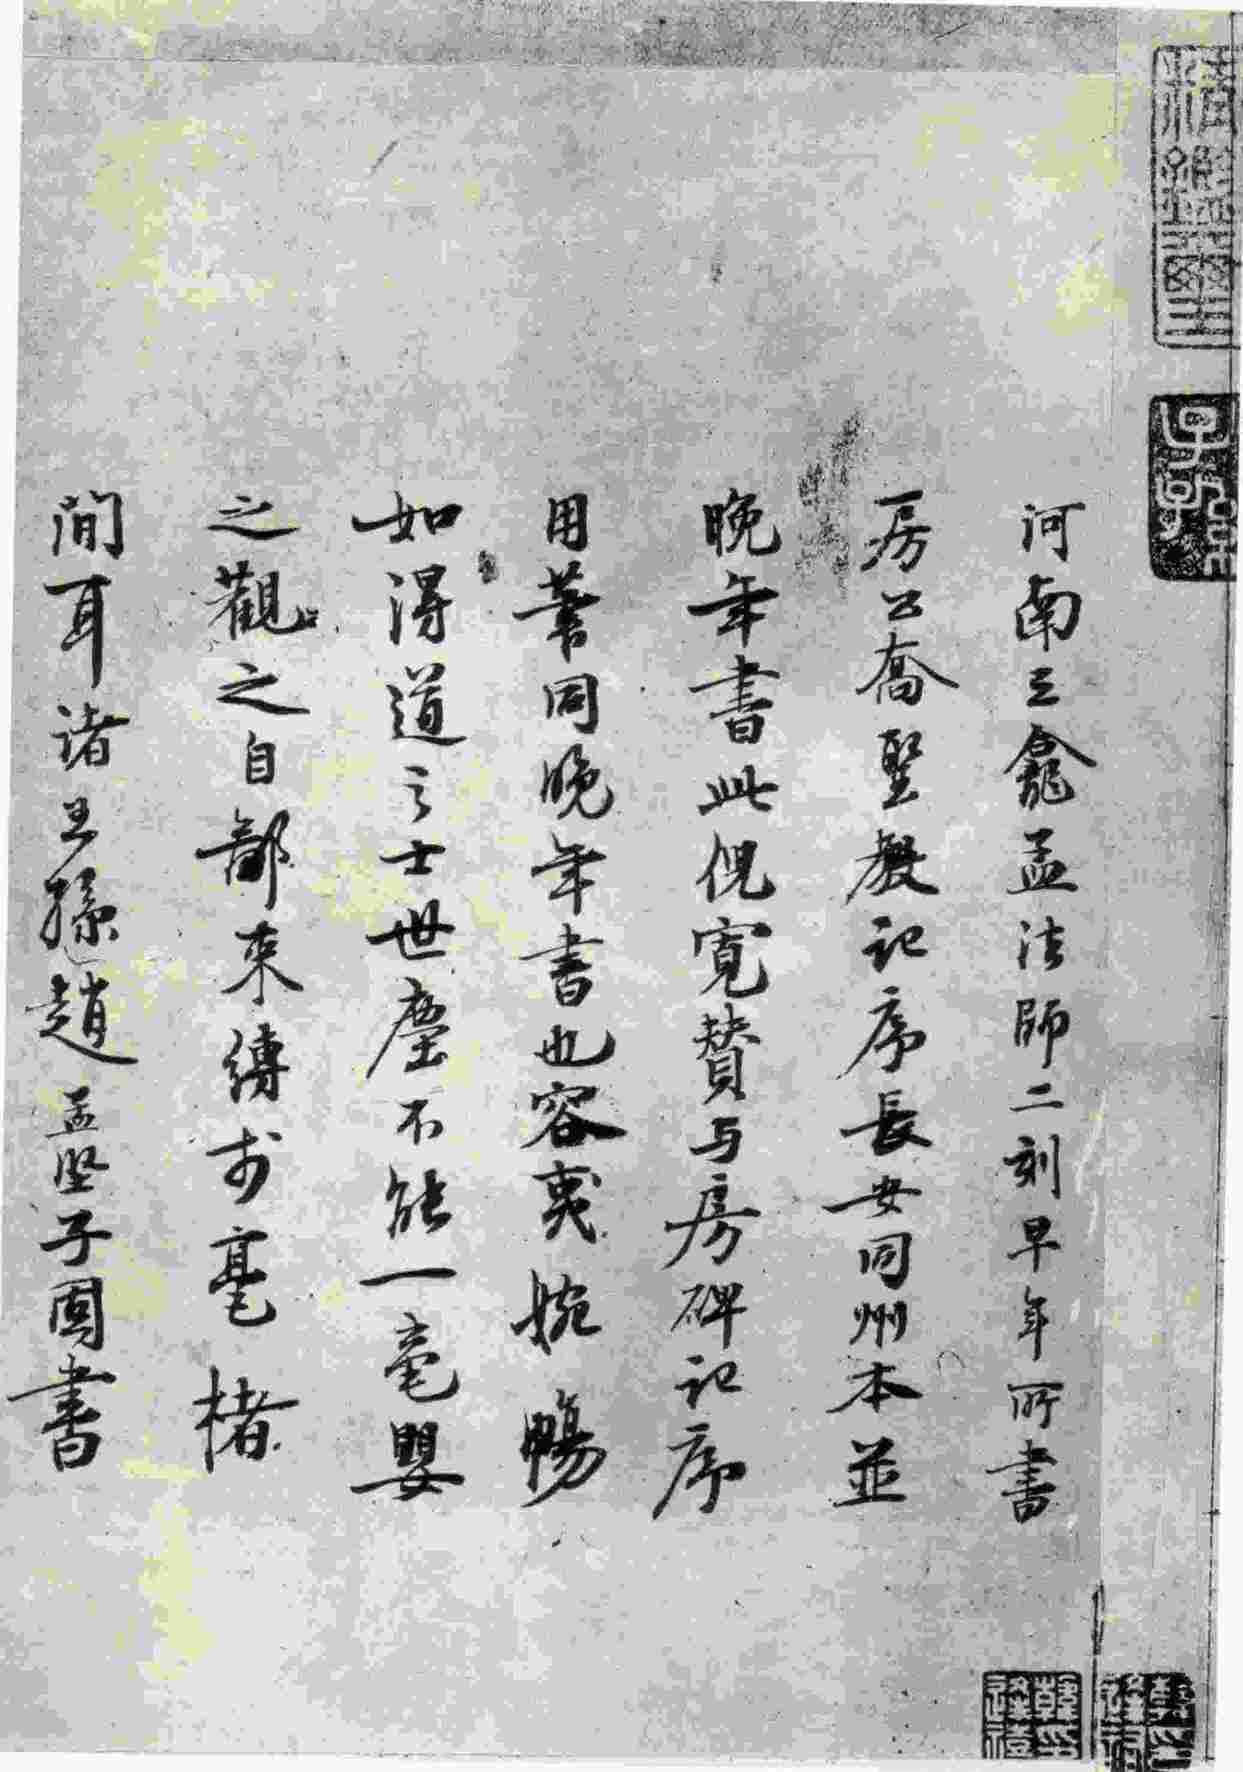 河南三龕孟法師二刻早年所書
房公喬聖教記序長安同州本並
晚年書此倪寬贊与房碑記序
用筆同晚年書也容夷婉暢
如得道之士世塵不能一毫嬰
之觀之自鄙束縛於毫楮
間耳諸王孫趙孟堅子固書